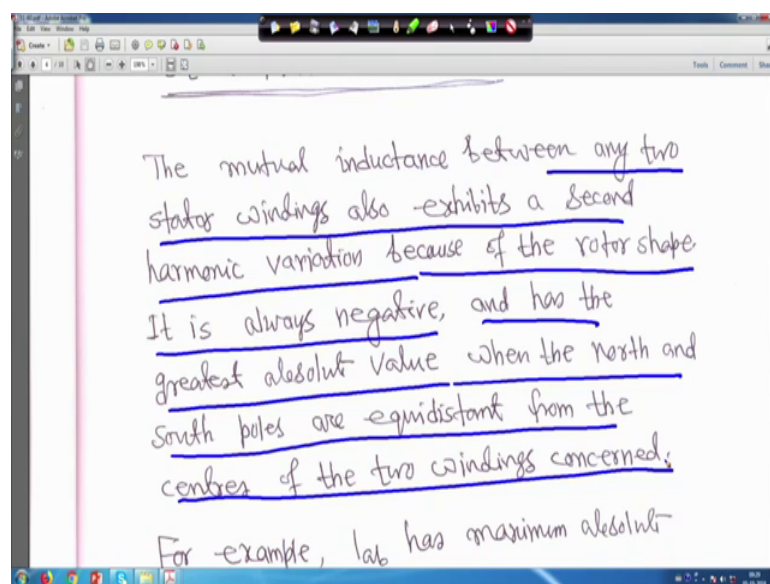 File Edit View Window Help
Create
Tools Comment
The mutual inductance between any two
stator windings also exhibits a second
harmonic variation because of the rotor shape.
It is always negative, and has the
greatest absolut value when the north and
south poles are equidistant from the
centres of the two windings concerned.
For example, lab has maximum absolut